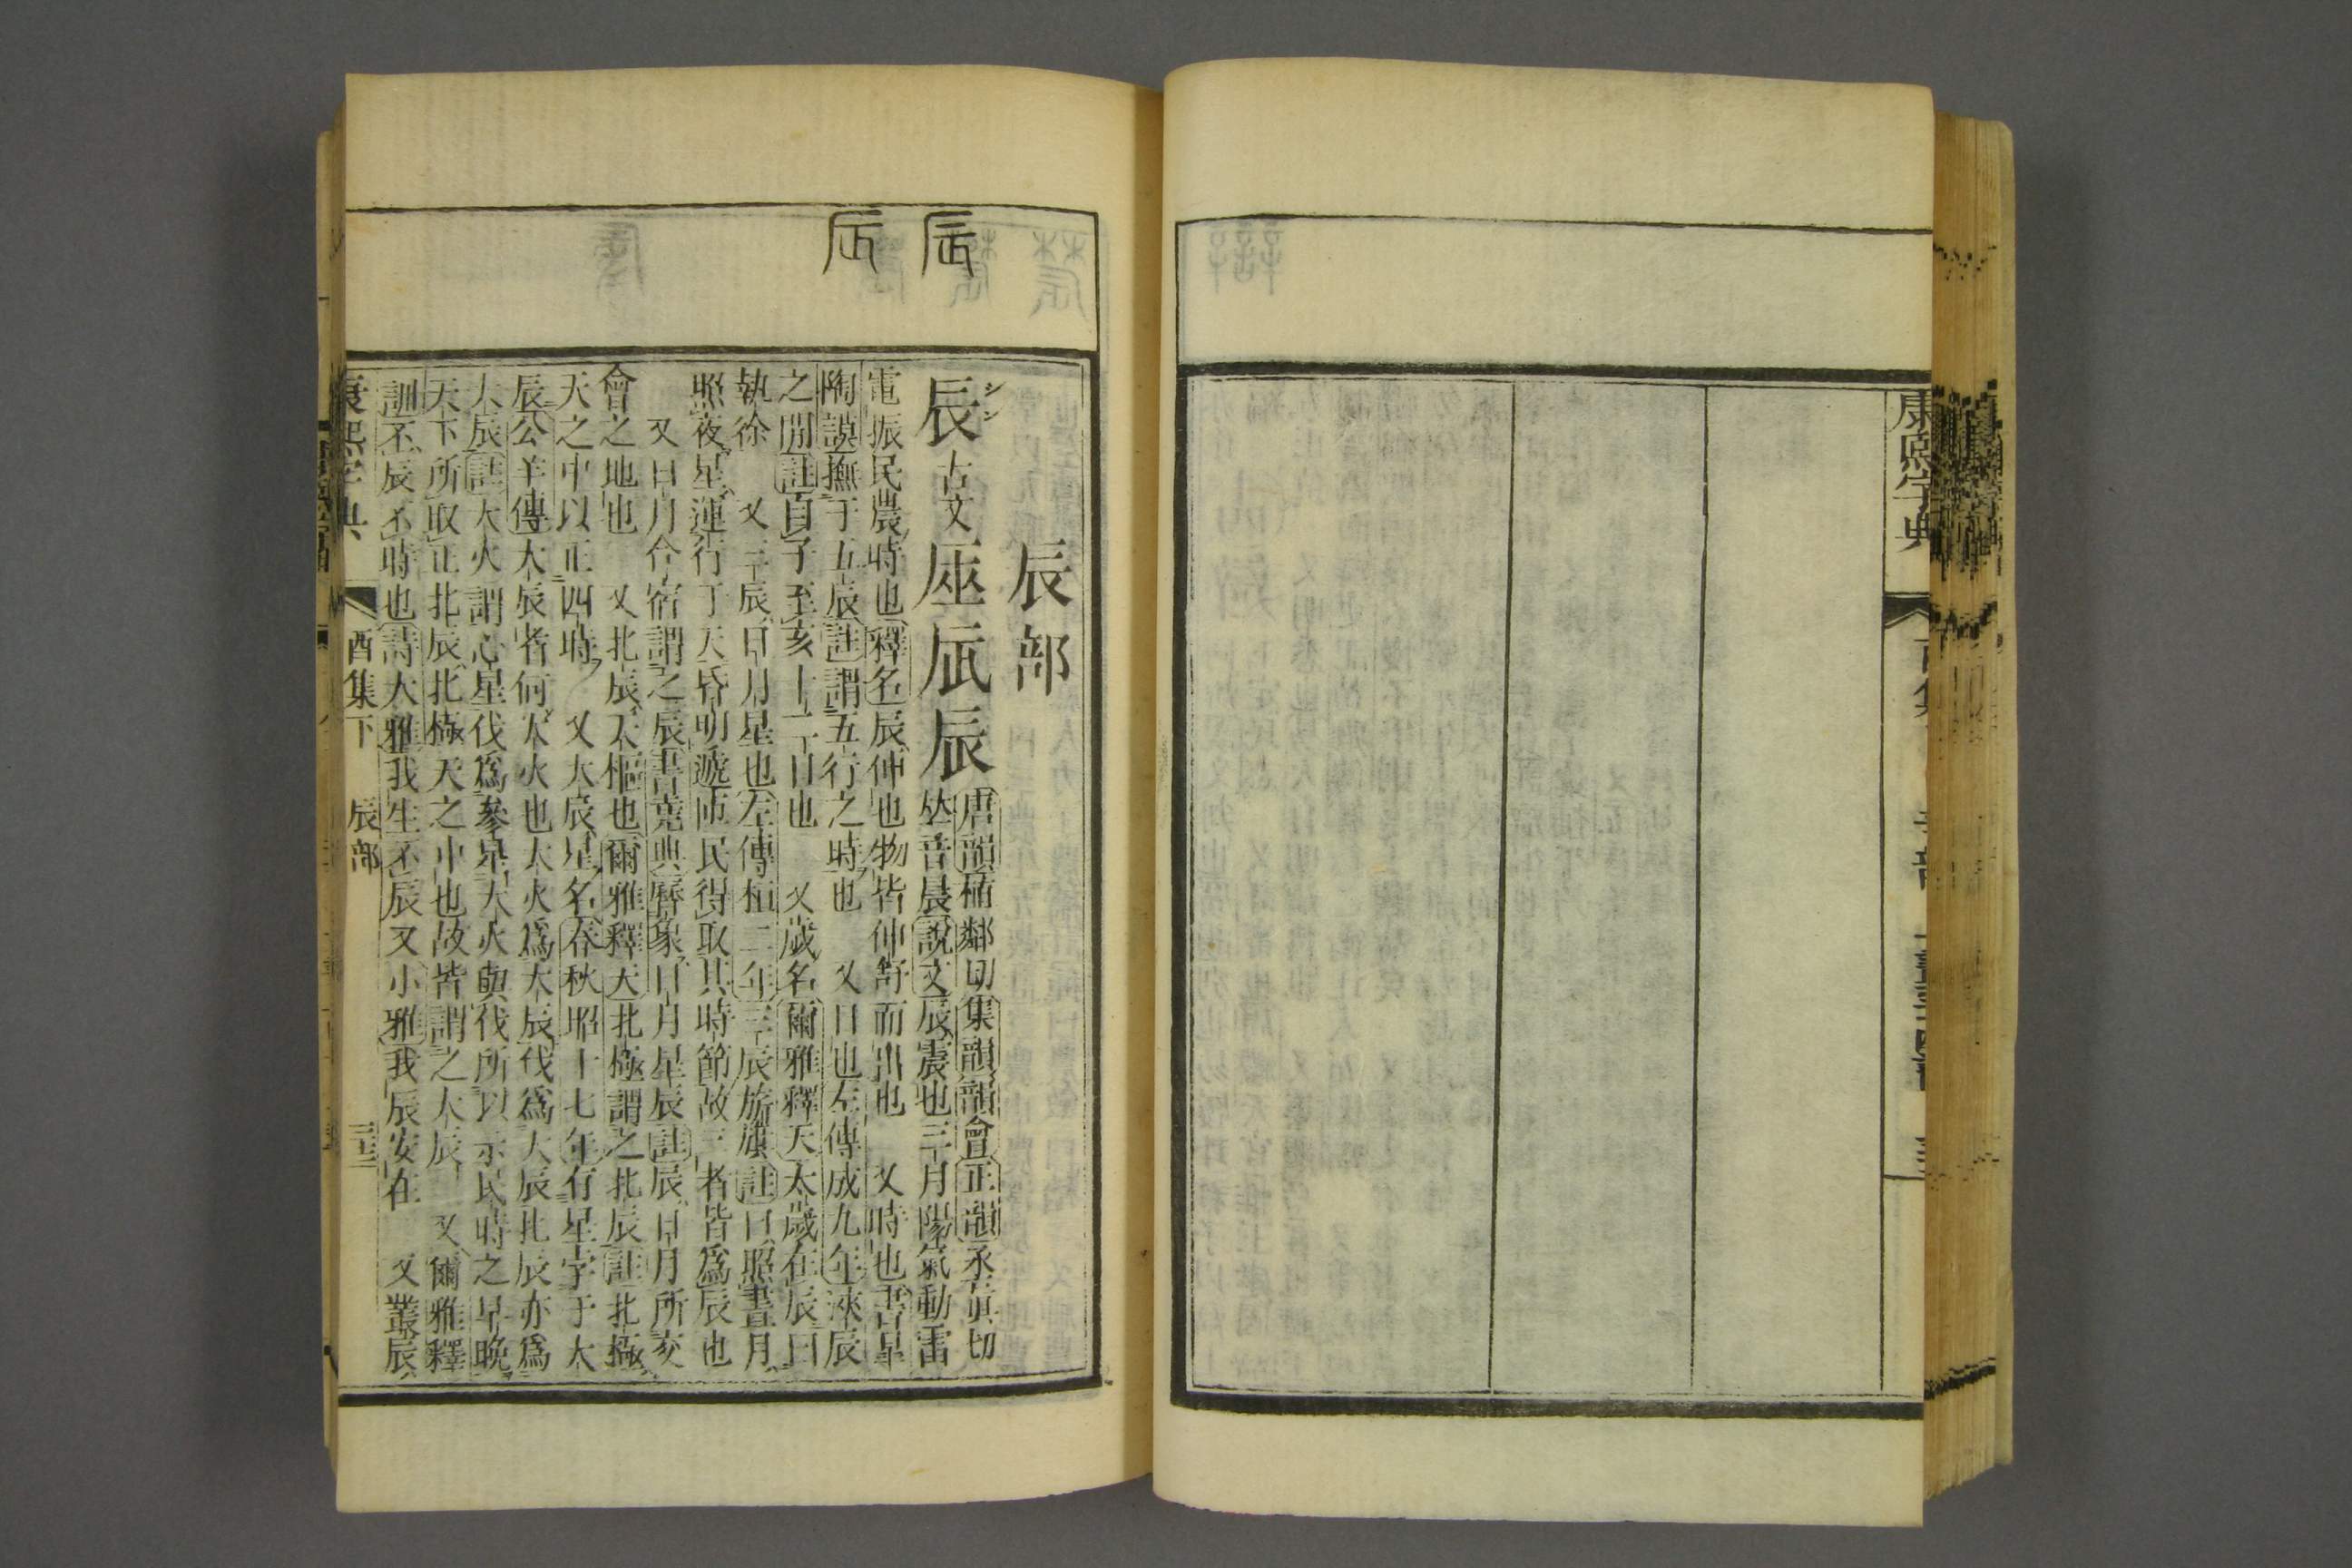 康熙字典
辰部
辰 古文
シン
唐韻植鄰切集韻韻會正韻丞真切
𠀤音晨說文辰震也三月陽氣動雷
電振民農時也釋名辰伸也物皆伸舒而出也 又時也書皋
陶謨撫于五辰註謂五行之時也 又日也左傳成九年浹辰
之閒註自子至亥十二日也 又歲名爾雅釋天太歲在辰曰
執徐 又三辰日月星也左傳桓二年三辰旂旗註日照晝月
照夜星運行于天昏明遞匝民得取其時節故三者皆爲辰也
又日月合宿謂之辰書堯典曆象日月星辰註辰日月所交
會之地也 又北辰天樞也爾雅釋天北極謂之北辰註北極
天之中以正四時 又大辰星名春秋昭十七年有星孛于大
辰公羊傳大辰者何大火也大火爲大辰伐爲大辰北辰亦爲
大辰註大火謂心星伐爲參星大火與伐所以示民時之早晚
天下所取正北辰北極天之中也故皆謂之大辰 又爾雅釋
訓不辰不時也詩大雅我生不辰又小雅我辰安在 又叢辰
康熙字典 酉集下 辰部 三十三